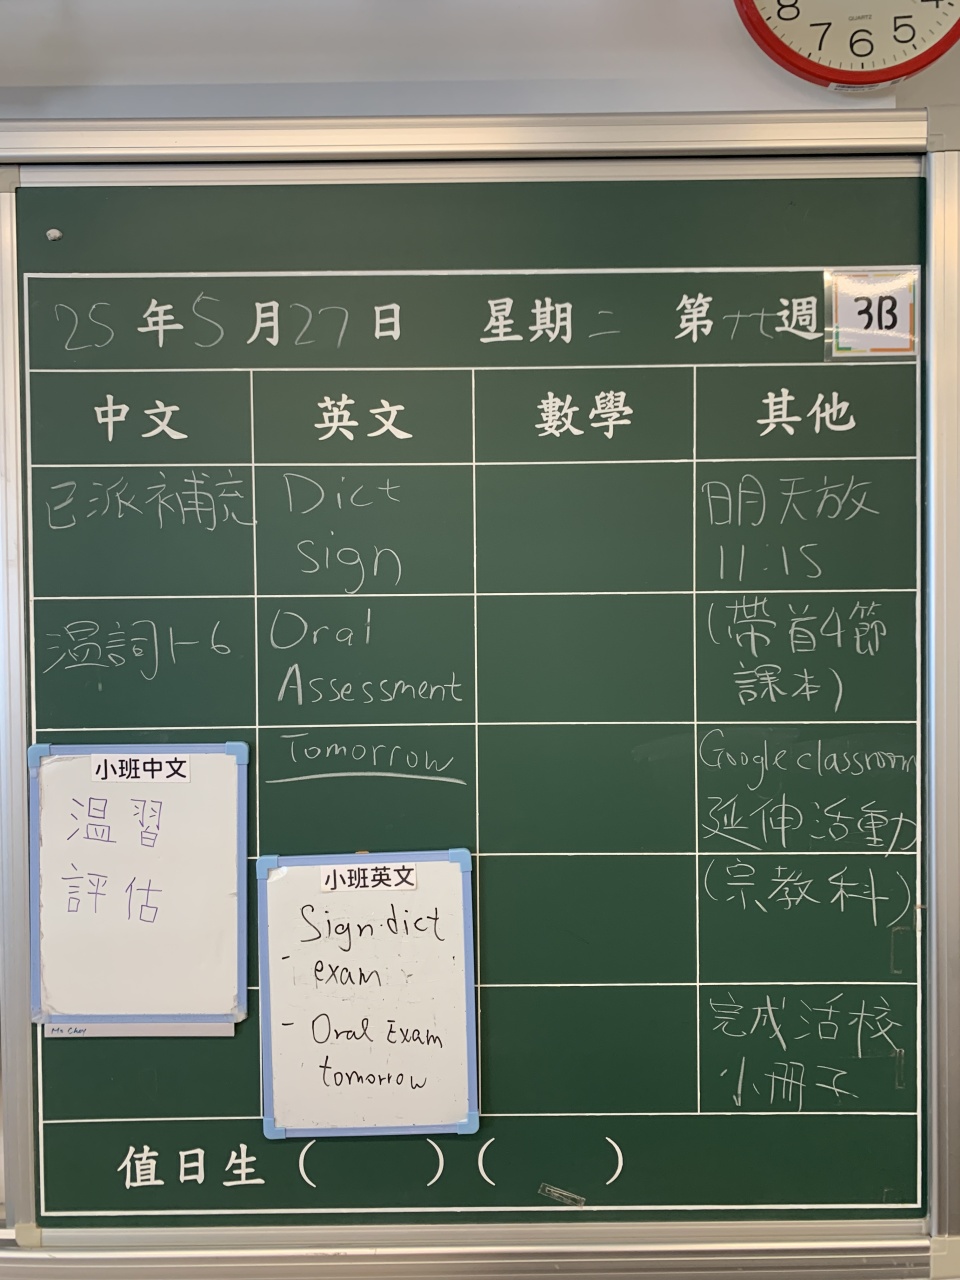 8 7 6 5 4
QUARTZ
25年5月27日 星期二 第廿週 3B
中文 英文 數學 其他
已派補充
温詞1-6
Dict
sign
Oral
Assessment
Tomorrow
明天放
11:15
(帶首4節
課本)
Google classroom
延伸活動
(宗教科)
完成活校
小冊子
小班中文
温習
評估
小班英文
Sign dict
- exam
- Oral Exam
tomorrow
值日生( )( )